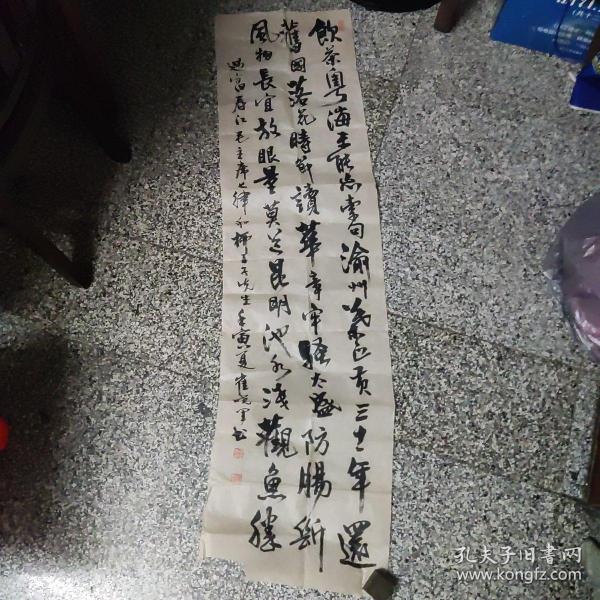 飲茶粵海未能忘索句渝州葉正黃三十一年還
舊國落花時節讀華章牢騷太盛防腸斷
風物長宜放眼量莫道昆明池水淺觀魚勝
過富春江毛主席七律和柳亞子先生壬寅夏崔書
孔夫子旧书网
www.kongfz.com